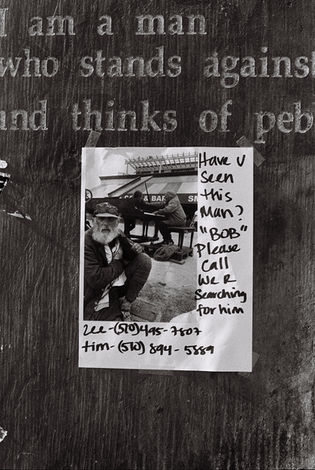 I am a man
who stands against
and thinks of peb
& BAR
Have U
Seen
this
Man?
"BOB"
Please
Call
We R
Searching
for him
Lee-(510)495-7807
tim-(510) 894-5889